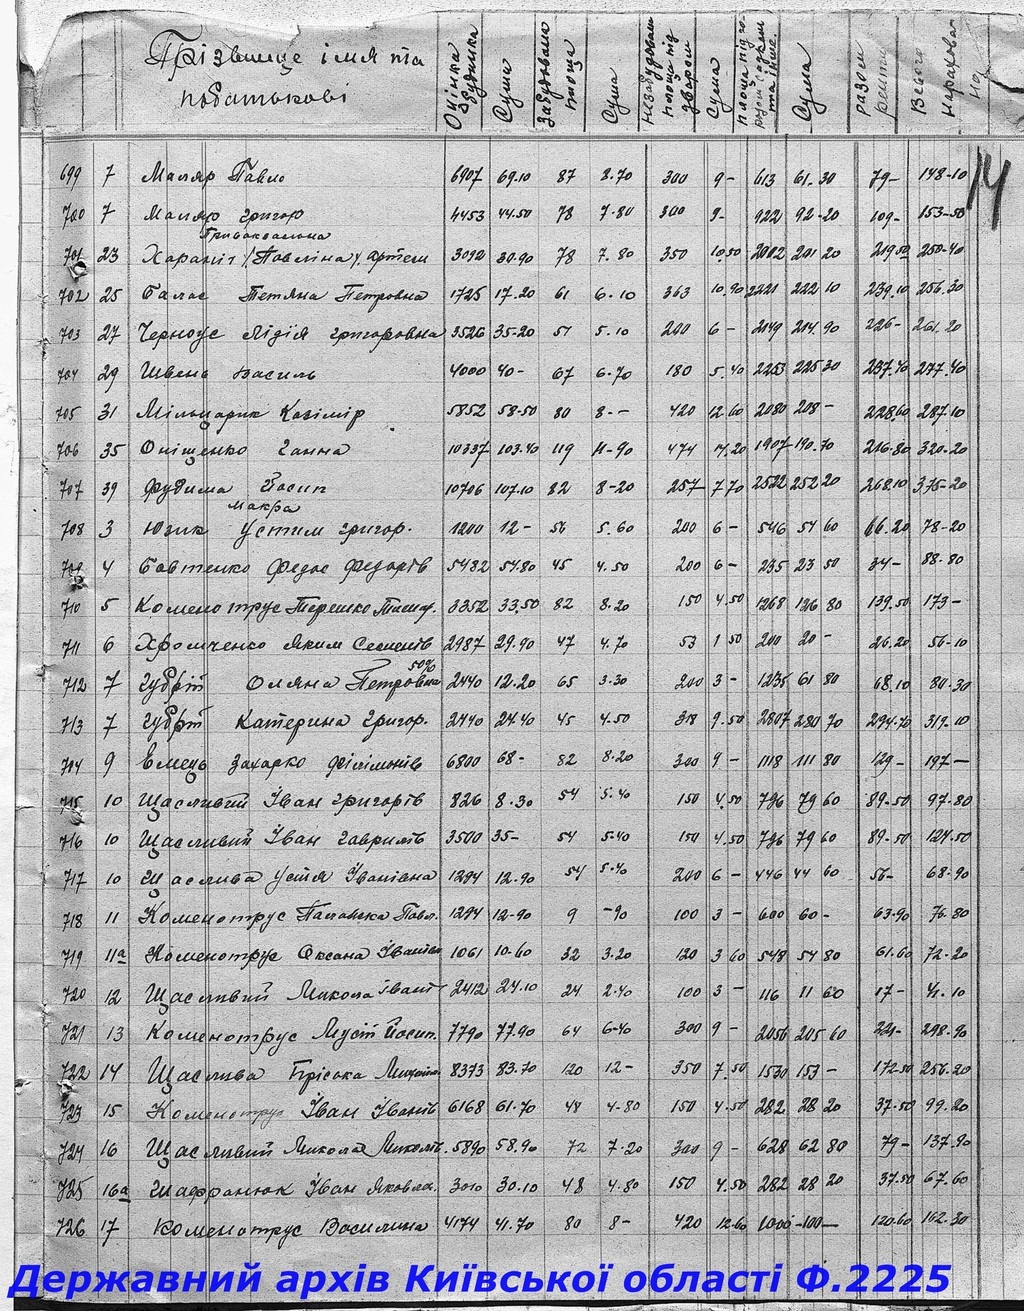 Прізвище імя та податькові | Оцінка будинка | Сума | Забудована площа | Сума | Незабудован площа під двором | Сума | площа під го- та інше. | Сума | разом ренти | Всього нарахова- но
14
699 7 Маляр Павло 6907 69.10 87 8.70 300 9- 613 61.30 79- 148-10
700 7 Маляр Григор 4453 44.50 78 7.80 300 9- 922 92-20 109- 153-50
Привокзальна
701 23 Хараніт /Павліна/ Артели 3092 30.90 78 7.80 350 10.50 2012 201 20 219.50 250-40
702 25 Галас Тетяна Петровна 1725 17.20 61 6.10 363 10.90 2221 222 10 239.10 256.30
703 27 Черноус Лідія Григоровна 3526 35.20 51 5.10 200 6- 2149 214.90 226- 261.20
704 29 Швень Василь 4000 40- 67 6.70 180 5.40 2253 225 30 237.40 277.40
705 31 Мільцарик Казімір 5852 58-50 80 8-- 420 12.60 2080 208- 228.60 287.10
706 35 Оніщенко Ганна 10337 103.40 119 11-90 474 14.20 1907 190.70 216.80 320.20
707 39 Фудима Йосип 10706 107.10 82 8-20 257 7.70 2522 252 20 268.10 375-20
Макра
708 3 Юзик Устим Григор. 1200 12- 56 5.60 200 6- 546 54 60 66.20 78-20
709 4 Бовтенко Федос Федорів 5482 54.80 45 4.50 200 6- 235 23 50 34- 88.80
710 5 Коменотрус Терешко 3352 33.50 82 8.20 150 4.50 1268 126 80 139.50 173-
711 6 Хромченко Яким Семенів 2987 29.90 47 4.70 53 1 50 200 20- 26.20 56-10
50%
712 7 Губріт Оляна Петровна 2440 12.20 65 3.30 200 3- 1235 61 80 68.10 80.30
713 7 Губріт Катерина Григор. 2440 24.40 45 4.50 318 9.50 2807 280 70 294.70 319.10
714 9 Ємець Захарко Філімонів 6800 68- 82 8.20 300 9- 1118 111 80 129- 197-
715 10 Щасливий Іван Григорів 826 8.30 54 5.40 150 4.50 796 79 60 89-50 97.80
716 10 Щасливий Іван Гаврилів 3500 35- 54 5.40 150 4.50 796 79 60 89-50 124.50
717 10 Щаслива Устя Іванівна 1294 12.90 54 5.40 200 6- 446 44 60 56- 68.90
718 11 Коменотрус Павл. 1294 12-90 9 -90 100 3- 600 60- 63.90 76.80
719 11а Коменотрус Оксана Іванівн 1061 10.60 32 3.20 120 3 60 548 54 80 61.60 72.20
720 12 Щасливий Микола Іванів 2412 24.10 24 2.40 100 3- 116 11 60 17- 41.10
721 13 Коменотрус Мусій Йосип. 7790 77.90 64 6-40 300 9- 2056 205 60 221- 298.90
722 14 Щаслива Пріська 8373 83.70 120 12- 350 7.50 1530 153- 172.50 256.20
723 15 Коменотрус Іван Іванів 6168 61.70 48 4.80 150 4.50 282 28 20 37.50 99.20
724 16 Щасливий Микола Миколів. 5890 58.90 72 7.20 300 9- 628 62 80 79- 137.90
725 16а Шафранюк Іван Яковл. 3010 30.10 48 4.80 150 4.50 282 28 20 37.50 67.60
726 17 Коменотрус Василина 4174 41.70 80 8- 420 12.60 1000 100- 120.60 162.30
Державний архів Київської області Ф.2225